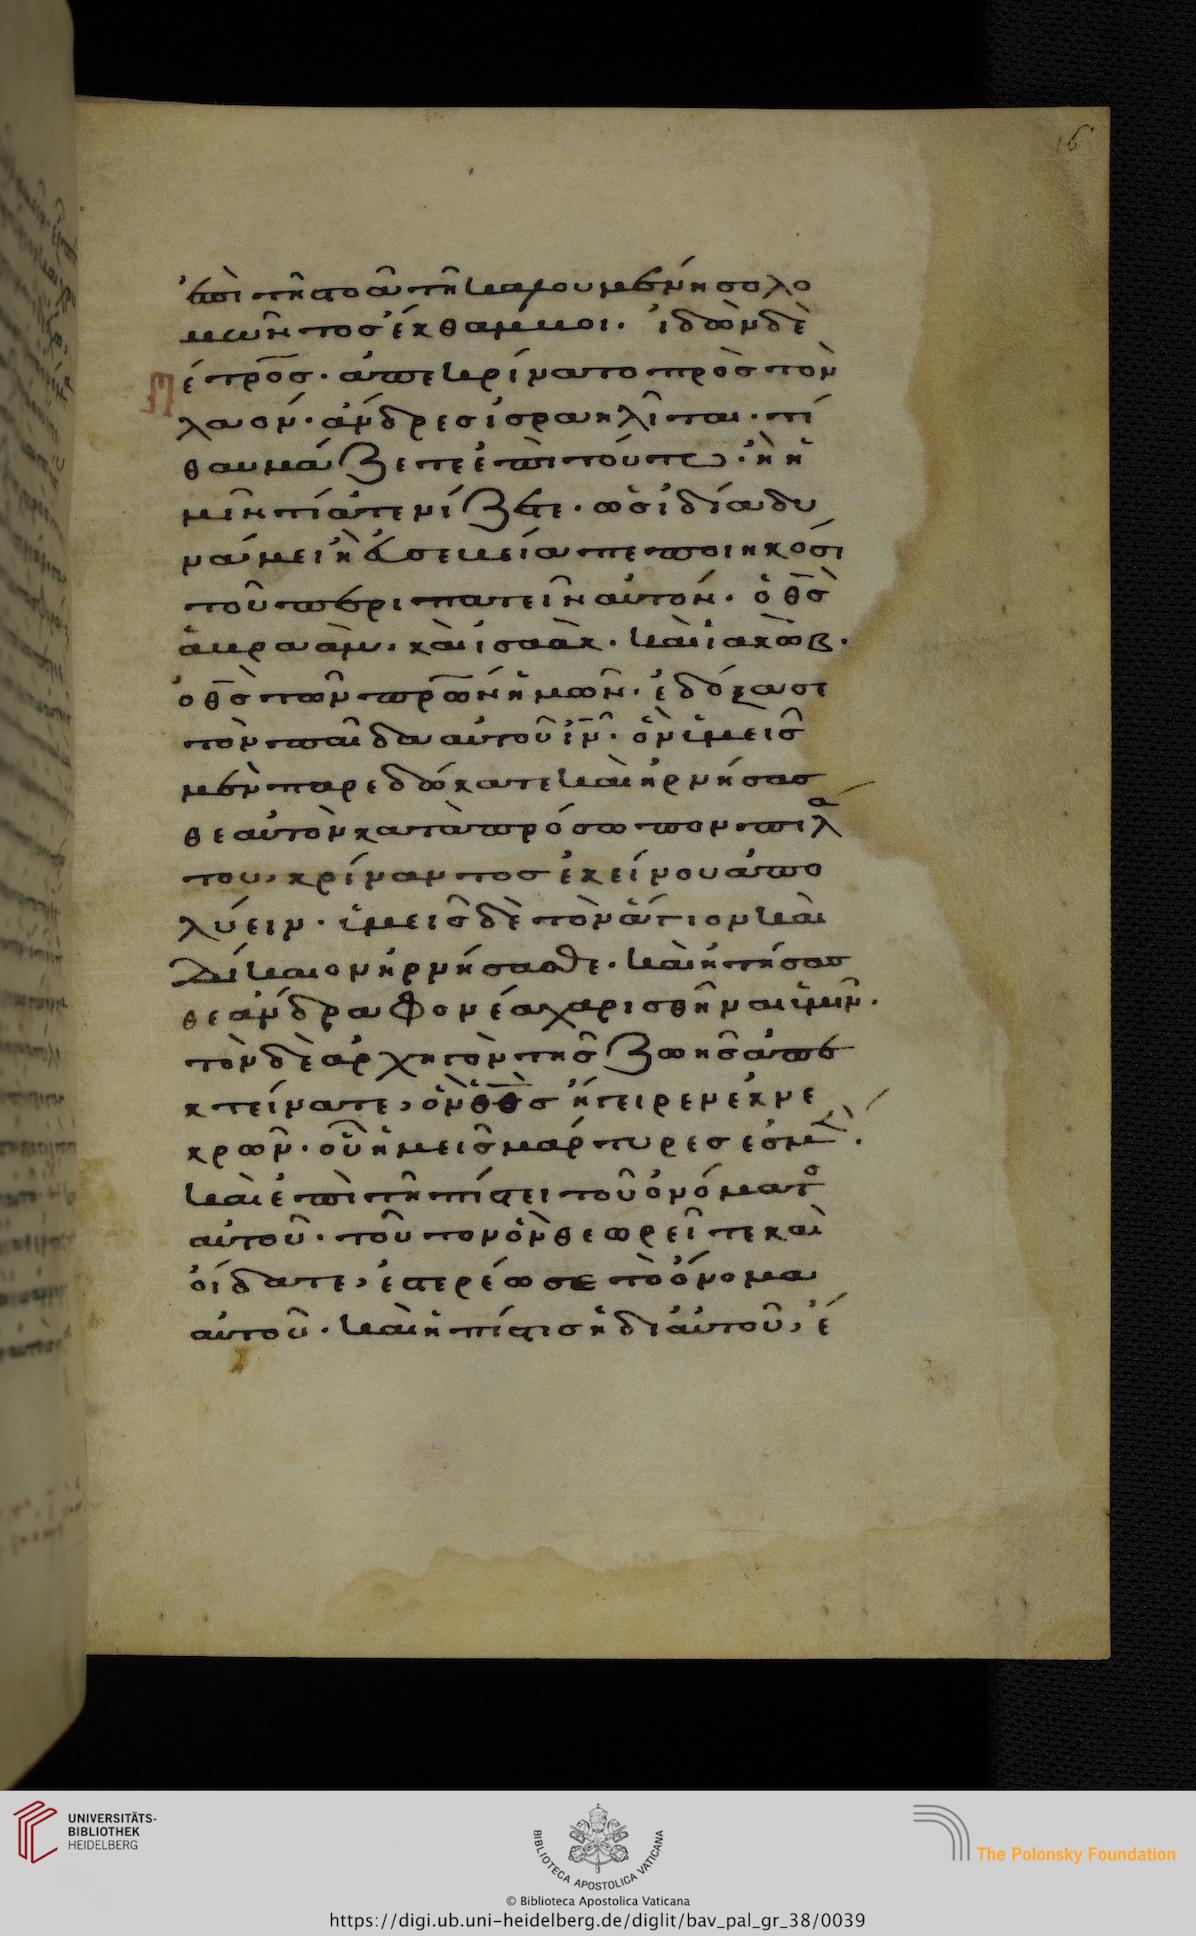 16
ἐπὶ τῆ στοᾶ τῆ καλουμένη σολο
μῶντος ἔκθαμμοι. ἰδὼν δὲ
π
έτρος. ἀπεκρίνατο πρὸς τὸν
λαόν. ἄνδρες ἰσραηλῖται. τί
θαυμάζετε ἐπὶ τούτω. ἢ ἡ
μῖν τί ἀτενίζετε. ὡς ἰδία δυ
νάμει ἢ εὐσεβεία πεποιηκόσι
τοῦ περιπατεῖν αὐτόν. ὁ θς
ἀβραὰμ. καὶ ἰσαὰκ. καὶ ἰακὼβ.
ὁ θς τῶν πρων ἡμῶν. ἐδόξασε
τὸν παῖδα αὐτοῦ ιν. ὃν ὑμεῖς
μὲν παρεδώκατε καὶ ἠρνήσασ
θε αὐτὸν κατὰ πρόσωπον πιλα
του, κρίναντος ἐκείνου ἀπο
λύειν. ὑμεῖς δὲ τὸν ἅγιον καὶ
δίκαιον ἠρνήσασθε. καὶ ἠτήσασ
θε ἄνδρα φονέα χαρισθῆναι ὑμῖν.
τὸν δὲ ἀρχηγὸν τῆς ζωῆς ἀπε
κτείνατε, ὃν ὁ θς ἤγειρεν ἐκ νε
κρῶν. οὗ ἡμεῖς μάρτυρες ἐσμὲν.
καὶ ἐπὶ τῆ πίστει τοῦ ὀνόματο
αὐτοῦ. τοῦτον ὃν θεωρεῖτε καὶ
οἴδατε, ἐστερέωσε τὸ ὄνομα
αὐτοῦ. καὶ ἡ πίστις ἡ δι αὐτοῦ, ἔ
UNIVERSITÄTS-
BIBLIOTHEK
HEIDELBERG
BIBLIOTECA APOSTOLICA VATICANA
The Polonsky Foundation
© Biblioteca Apostolica Vaticana
https://digi.ub.uni-heidelberg.de/diglit/bav_pal_gr_38/0039